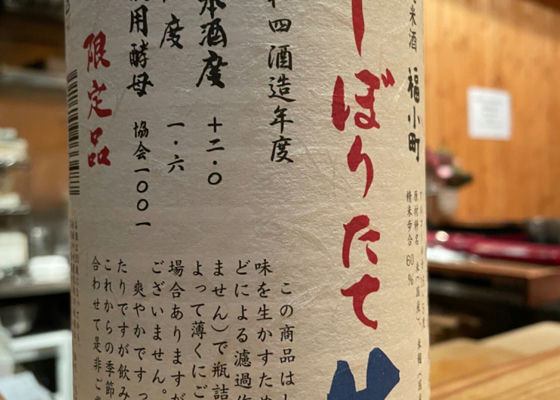 米酒 福小町
原材料名 米(国産)、米麹(国産
精米歩合 60%
しぼりたて
四酒造年度
本酒度 +二・〇
度 一・六
使用酵母 協会一〇〇一
限定品
この商品はし
味を生かすため
どによる濾過作
ません)で瓶詰
よって薄くにご
場合ありますが
ございません。
爽やかですっ
たりですが飲み
これからの季節
合わせて是非ご